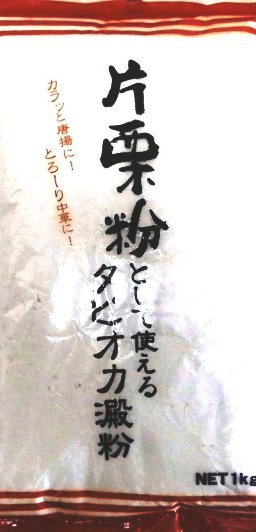 片栗粉として使える
タピオカ澱粉
カラッと唐揚に!
とろーり中華に!
NET1kg